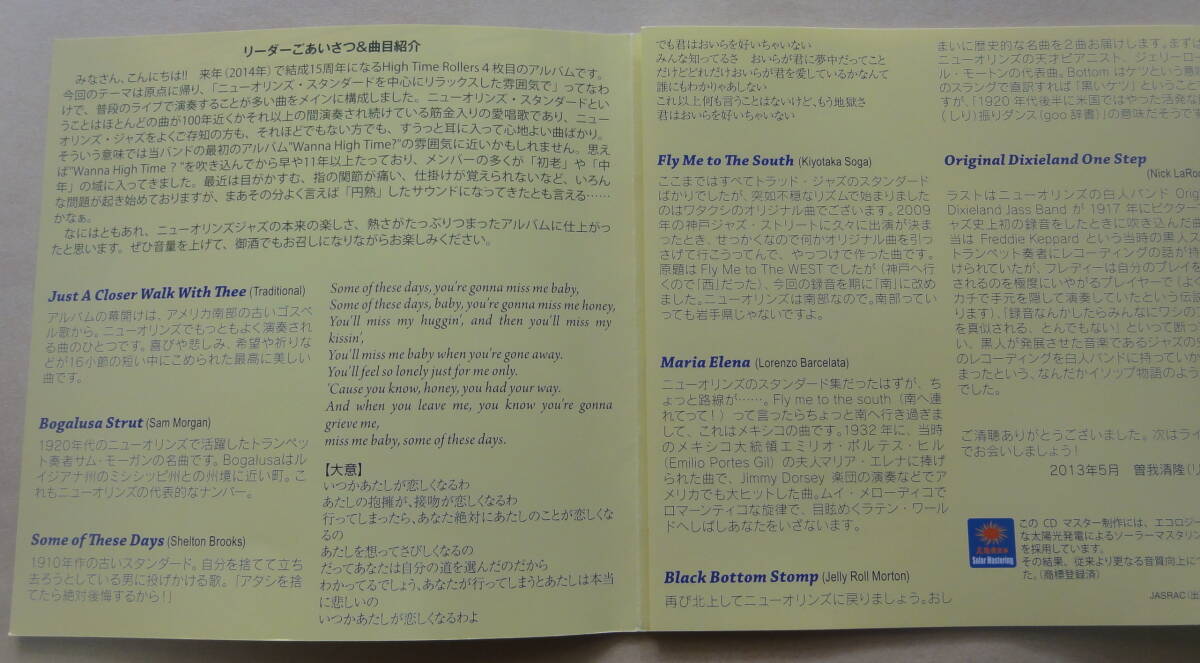 リーダーごあいさつ&曲目紹介
みなさん、こんにちは!! 来年(2014年)で結成15周年になるHigh Time Rollers 4枚目のアルバムです。
今回のテーマは原点に帰り、「ニューオリンズ・スタンダードを中心にリラックスした雰囲気で」ってなわ
けで、普段のライブで演奏することが多い曲をメインに構成しました。ニューオリンズ・スタンダードとい
うことはほとんどの曲が100年近くかそれ以上の間演奏され続けている筋金入りの愛唱歌であり、ニュー
オリンズ・ジャズをよくご存知の方も、それほどでもない方でも、すうっと耳に入って心地よい曲ばかり。
そういう意味では当バンドの最初のアルバム"Wanna High Time?"の雰囲気に近いかもしれません。思え
ば"Wanna High Time ? "を吹き込んでから早や11年以上たっており、メンバーの多くが「初老」や「中
年」の域に入ってきました。最近は目がかすむ、指の関節が痛い、仕掛けが覚えられないなど、いろん
な問題が起き始めておりますが、まあその分よく言えば「円熟」したサウンドになってきたとも言える……
かなぁ。
なにはともあれ、ニューオリンズジャズの本来の楽しさ、熱さがたっぷりつまったアルバムに仕上がっ
たと思います。ぜひ音量を上げて、御酒でもお召しになりながらお楽しみください。
Just A Closer Walk With Thee (Traditional)
アルバムの幕開けは、アメリカ南部の古いゴスペ
ル歌から。ニューオリンズでもっともよく演奏され
る曲のひとつです。喜びや悲しみ、希望や祈りな
どが16小節の短い中にこめられた最高に美しい
曲です。
Bogalusa Strut (Sam Morgan)
1920年代のニューオリンズで活躍したトランペッ
ト奏者サム・モーガンの名曲です。Bogalusaはル
イジアナ州のミシシッピ州との州境に近い町。こ
れもニューオリンズの代表的なナンバー。
Some of These Days (Shelton Brooks)
1910年作の古いスタンダード。自分を捨てて立ち
去ろうとしている男に投げかける歌。「アタシを捨
てたら絶対後悔するから!」
Some of these days, you're gonna miss me baby,
Some of these days, baby, you're gonna miss me honey,
You'll miss my huggin', and then you'll miss my
kissin',
You'll miss me baby when you're gone away.
You'll feel so lonely just for me only.
'Cause you know, honey, you had your way.
And when you leave me, you know you're gonna
grieve me,
miss me baby, some of these days.
【大意】
いつかあたしが恋しくなるわ
あたしの抱擁が、接吻が恋しくなるわ
行ってしまったら、あなた絶対にあたしのことが恋しくな
るの
あたしを想ってさびしくなるの
だってあなたは自分の道を選んだのだから
わかってるでしょう、あなたが行ってしまうとあたしは本当
に悲しいの
いつかあたしが恋しくなるわよ
でも君はおいらを好いちゃいない
みんな知ってるさ おいらが君に夢中だってこと
だけどどれだけおいらが君を愛しているかなんて
誰にもわかりゃあしない
これ以上何も言うことはないけど、もう地獄さ
君はおいらを好いちゃいない
Fly Me to The South (Kiyotaka Soga)
ここまではすべてトラッド・ジャズのスタンダード
ばかりでしたが、突如不穏なリズムで始まりました
のはワタクシのオリジナル曲でございます。2009
年の神戸ジャズ・ストリートに久々に出演が決ま
ったとき、せっかくなので何かオリジナル曲を引っ
さげて行こうってんで、やっつけで作った曲です。
原題は Fly Me to The WEST でしたが(神戸へ行
くので「西」だった)、今回の録音を期に「南」に改め
ました。ニューオリンズは南部なので。南部ってい
っても岩手県じゃないですよ。
Maria Elena (Lorenzo Barcelata)
ニューオリンズのスタンダード集だったはずが、ち
ょっと路線が……。Fly me to the south(南へ連
れてって!)って言ったらちょっと南へ行き過ぎま
して、これはメキシコの曲です。1932年に、当時
のメキシコ大統領エミリオ・ポルテス・ヒル
(Emilio Portes Gil)の夫人マリア・エレナに捧げ
られた曲で、Jimmy Dorsey 楽団の演奏などでア
メリカでも大ヒットした曲。ムイ・メローディコで
ロマーンティコな旋律で、目眩めくラテン・ワール
ドへしばしあなたをいざないます。
Black Bottom Stomp (Jelly Roll Morton)
再び北上してニューオリンズに戻りましょう。おし
まいに歴史的な名曲を2曲お届けします。まずは
ニューオリンズの天才ピアニスト、ジェリーロー
ル・モートンの代表曲。Bottom はケツという意味
のスラングで直訳すれば「黒いケツ」ということ
すが、「1920 年代後半に米国ではやった活発な
(しり)振りダンス(goo 辞書)」の意味だそうです
Original Dixieland One Step
(Nick LaRoc
ラストはニューオリンズの白人バンド Orig
Dixieland Jass Band が 1917 年にビクター
ャズ史上初の録音をしたときに吹き込んだ曲
当は Freddie Keppard という当時の黒人ス
トランペット奏者にレコーディングの話が持
けられていたが、フレディーは自分のプレイを
されるのを極度にいやがるプレイヤーで(よく
カチで手元を隠して演奏していたという伝説
ります)、「録音なんかしたらみんなにワシの
を真似される、とんでもない!」といって断っ
い、黒人が発展させた音楽であるジャズの
のレコーディングを白人バンドに持っていか
まったという、なんだかイソップ物語のよう
でした。
ご清聴ありがとうございました。次はライ
でお会いしましょう!
2013年5月 曽我清隆(リ
この CD マスター制作には、エコロジー
な太陽光発電によるソーラーマスタリン
を採用しています。
その結果、従来より更なる音質向上に
た。(商標登録済)
Solar Mastering
JASRAC(出